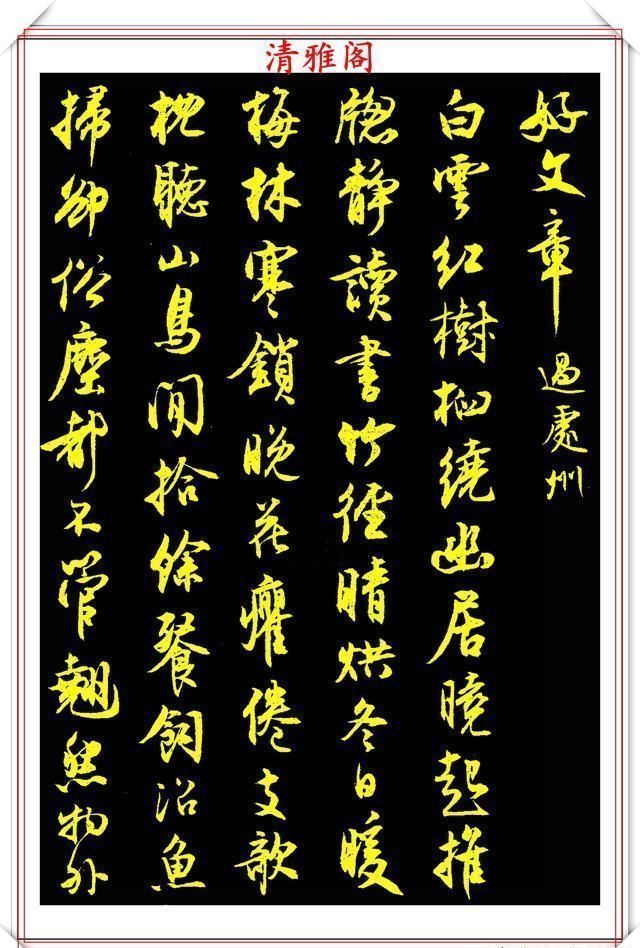 清雅阁
好文章 過處州
白雲紅樹相繞幽居曉起推
窓靜讀書竹徑晴烘冬日暖
梅林寒鎖晚花癯倦支欹
枕聽山鳥閒拾餘餐飼沼魚
掃卻俗塵都不管翹然物外